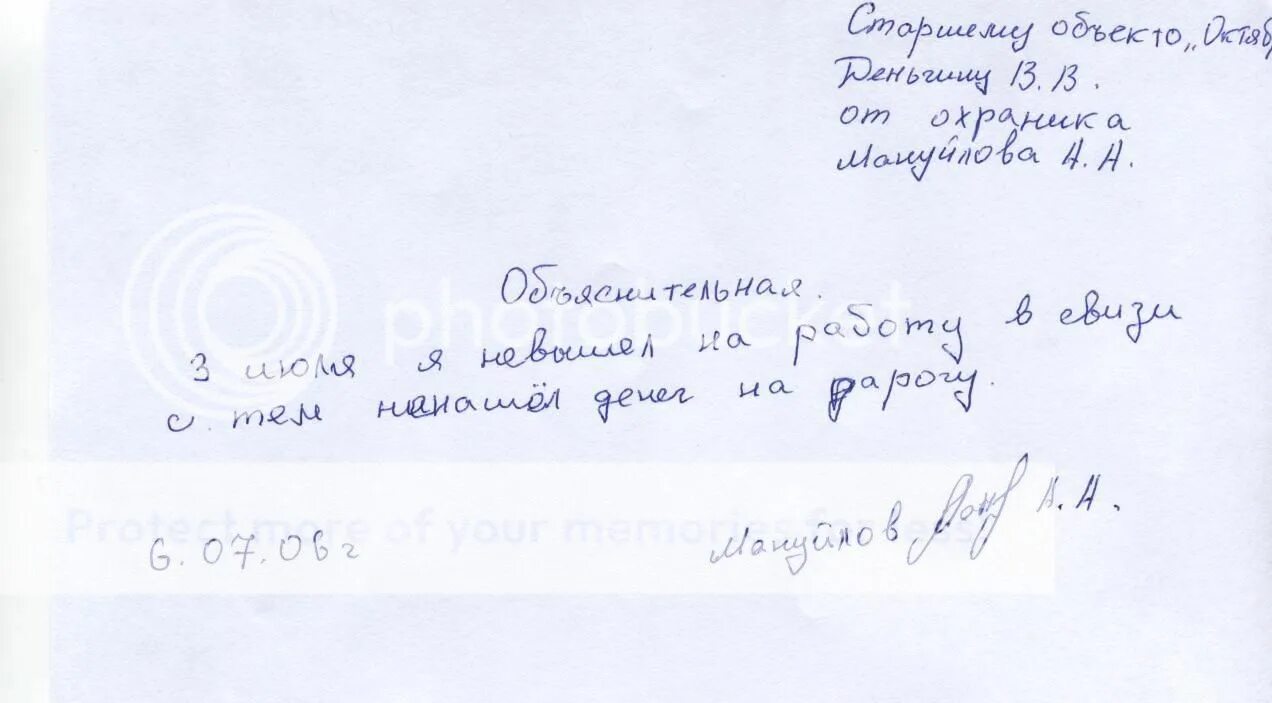 Старшему объекто „Октяб
Деньгину В.В.
от охраника
Мануйлова А.А.
Объяснительная.
3 июля я невышел на работу в свизи
с тем ненашёл денег на дарогу.
6.07.06г
Мануйлов А.А.
photobucket
Protect more of your memories for less